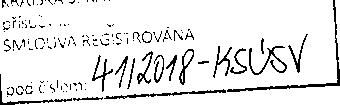 SMLOUVA REGISTROVÁNA
pod číslem: 41/2018-KSÚSV